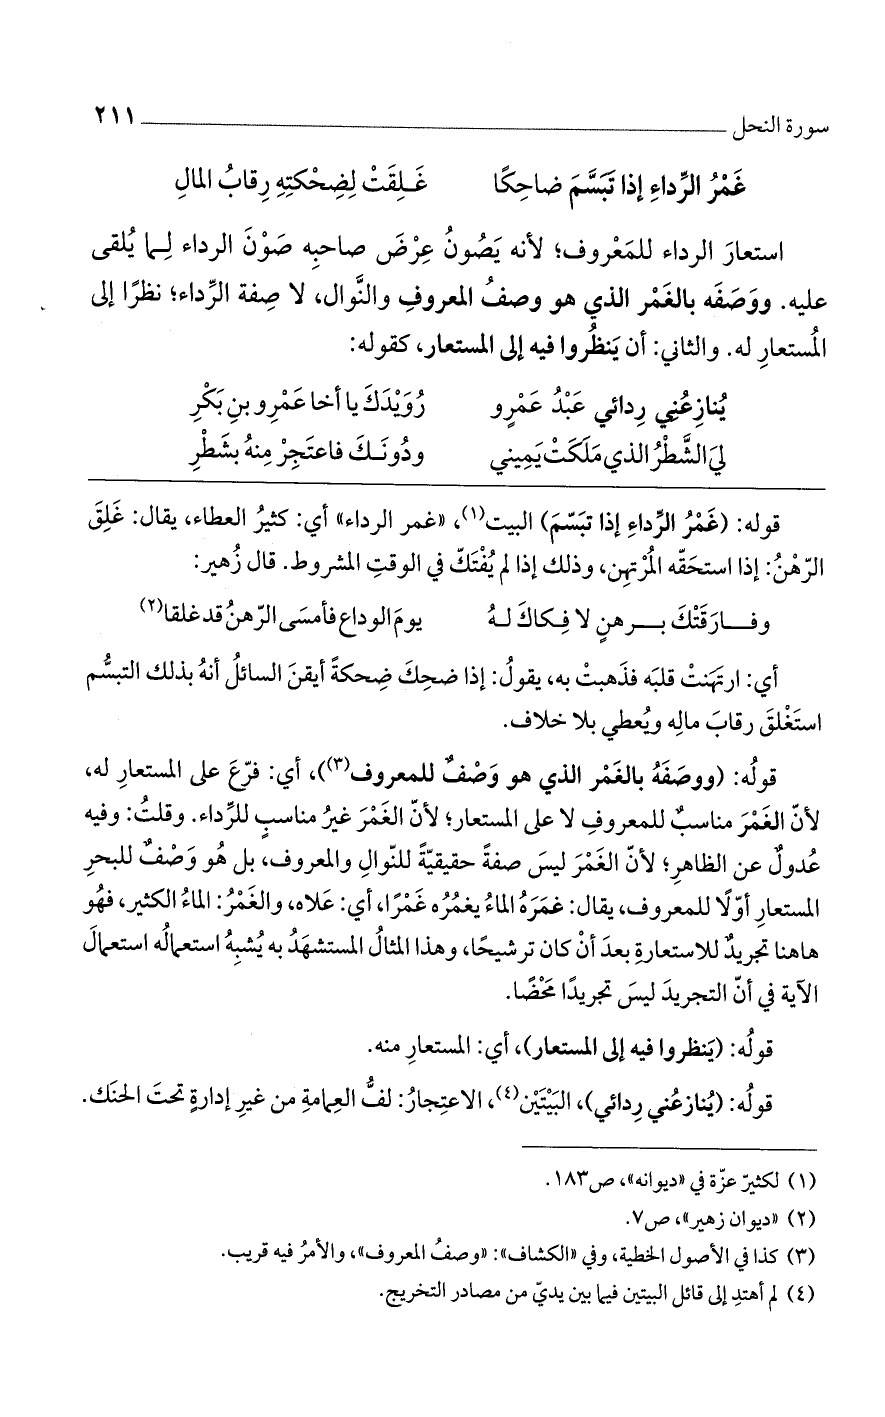 سورة النحل ٢١١
غَمْرُ الرِّداءِ إذا تَبَسَّمَ ضاحِكًا غَـلِقَتْ لِضِحْكتِهِ رِقابُ المالِ
استعارَ الرداء للمَعْروف؛ لأنه يَصُونُ عِرْضَ صاحبِه صَوْنَ الرداء لِـما يُلقى
عليه. ووَصَفَه بالغَمْر الذي هو وصفُ المعروفِ والنَّوال، لا صِفة الرِّداء؛ نظرًا إلى
المُستعارِ له. والثاني: أن يَنظُروا فيه إلى المستعار، كقوله:
يُنازِعُنِي رِدائي عَبْدُ عَمْرٍو رُوَيْدَكَ يا أخا عَمْرِو بنِ بَكْرِ
لِيَ الشَّطْرُ الذي مَلَكَتْ يَمِيني ودُونَـكَ فاعتَجِرْ مِنهُ بشَطْرِ
قوله: (غَمْرُ الرِّداءِ إذا تبَسّمَ) البيت(١)، «غمر الرداء» أي: كثيرُ العطاء، يقال: غَلِقَ
الرّهْنُ: إذا استحَقّه المُرْتهِن، وذلك إذا لم يُفْتَكّ في الوقتِ المشروط. قال زُهير:
وفـــارَقَتْكَ بـــرهنٍ لا فِـكاكَ لـهُ يومَ الوداعِ فأمسَى الرّهنُ قد غلقا(٢)
أي: ارتَهَنتْ قلبَه فذَهبتْ به، يقولُ: إذا ضحِكَ ضِحكةً أيقنَ السائلُ أنهُ بذلك التبسُّم
استَغْلقَ رقابَ مالِه ويُعطي بلا خلاف.
قولُه: (ووصَفَهُ بالغَمْر الذي هو وَصْفٌ للمعروف(٣))، أي: فرّعَ على المستعارِ له،
لأنّ الغَمْرَ مناسبٌ للمعروفِ لا على المستعار؛ لأنّ الغَمْرَ غيرُ مناسبٍ للرِّداء. وقلتُ: وفيه
عُدولٌ عن الظاهرِ؛ لأنّ الغَمْرَ ليسَ صفةً حقيقيّةً للنّوالِ والمعروف، بل هُو وَصْفٌ للبحرِ
المستعارِ أوّلًا للمعروف، يقال: غمَرَهُ الماءُ يغمُرُه غَمْرًا، أي: عَلاه، والغَمْرُ: الماءُ الكثير، فهُو
هاهنا تجريدٌ للاستعارةِ بعدَ أنْ كان ترشيحًا، وهذا المثالُ المستشهَدُ به يُشبِهُ استعمالُه استعمالَ
الآية في أنّ التجريدَ ليسَ تجريدًا مَحْضًا.
قولُه: (يَنظروا فيه إلى المستعار)، أي: المستعارِ منه.
قولُه: (يُنازعُني رِدائي)، البَيْتَيْن(٤)، الاعتِجارُ: لفُّ العِمامةِ من غيرِ إدارةٍ تحتَ الحنَك.
(١) لكثيرّ عزّة في «ديوانه»، ص١٨٣.
(٢) «ديوان زهير»، ص٧.
(٣) كذا في الأصول الخطية، وفي «الكشاف»: «وصفُ المعروف»، والأمرُ فيه قريب.
(٤) لم أهتدِ إلى قائل البيتين فيما بين يديّ من مصادر التخريج.